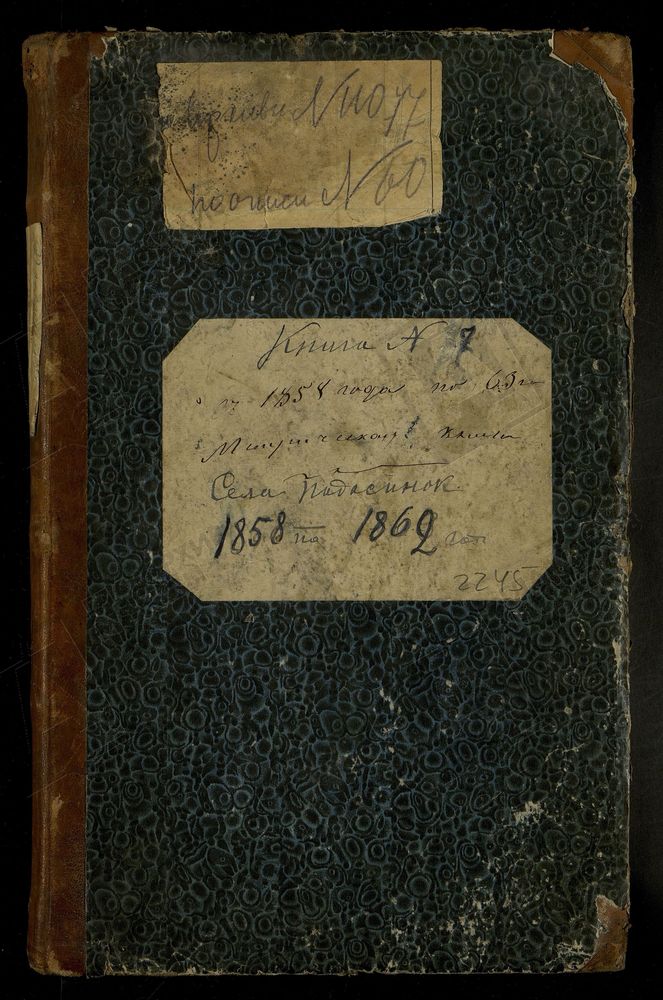 Архивн № 11077
по описи № 60
Книга № 7
съ 1858 года по 63 го
Метрическая книга
Села Подосинок
1858 по 1862 год
2245